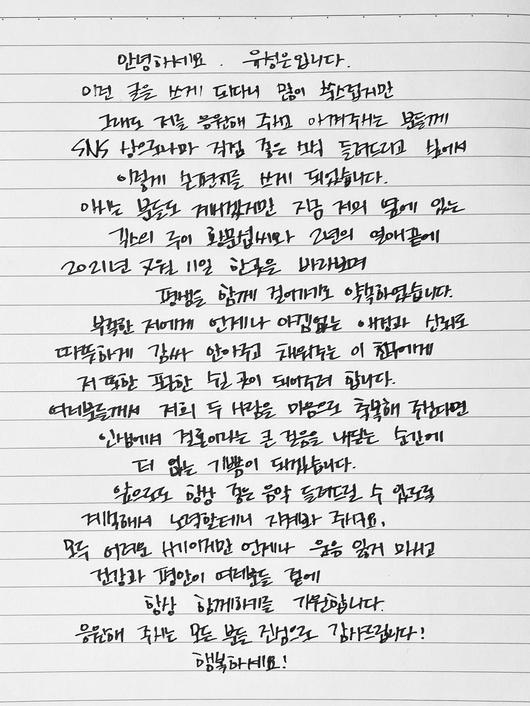 안녕하세요. 유성은입니다.
이런 글을 쓰게 되다니 많이 쑥스럽지만
그래도 저를 응원해 주시고 아껴주시는 분들께
SNS 상으로나마 직접 좋은 소식 들려드리고 싶어서
이렇게 손편지를 쓰게 되었습니다.
아시는 분들도 계시겠지만 지금 저의 옆에 있는
긱스의 루이 황문섭씨와 2년의 열애끝에
2021년 7월 11일 한곳을 바라보며
평생을 함께 걸어가기로 약속하였습니다.
부족한 저에게 언제나 아낌없는 애정과 신뢰로
따뜻하게 감싸 안아주고 채워주는 이 친구에게
저 또한 포근한 쉴 곳이 되어주려 합니다.
여러분들께서 저희 두 사람을 마음으로 축복해 주신다면
인생에서 결혼이라는 큰 걸음을 내딛는 순간에
더 없는 기쁨이 되겠습니다.
앞으로도 항상 좋은 음악 들려드릴 수 있도록
계속해서 노력할테니 지켜봐 주세요.
모두 어려운 시기이지만 언제나 웃음 잃지 마시고
건강과 평안이 여러분들 곁에
항상 함께하기를 기원합니다.
응원해 주시는 모든 분들 진심으로 감사드립니다!
행복하세요!